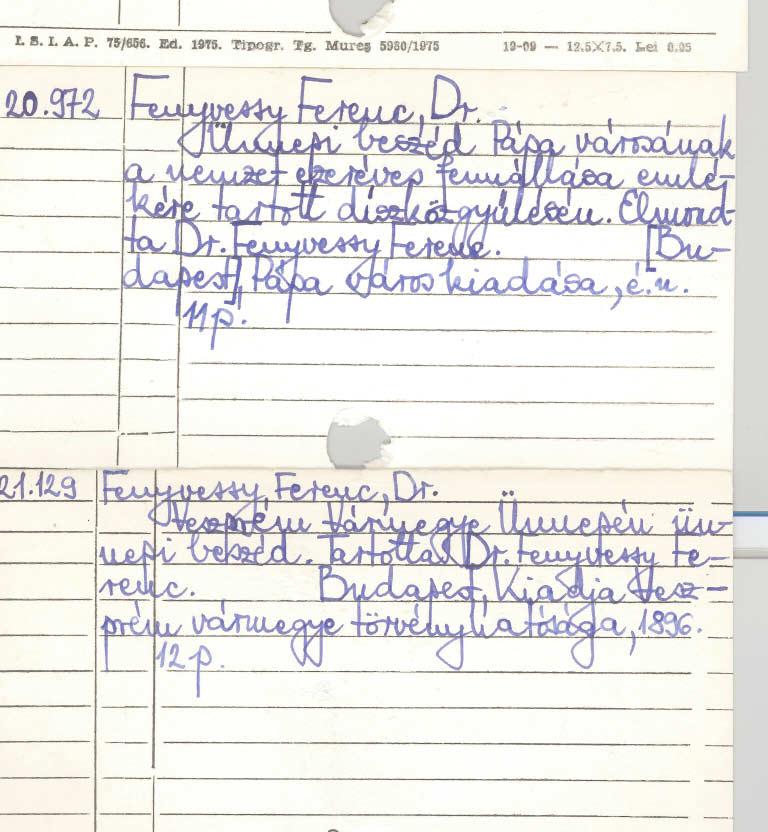 I. S. I. A. P. 75/656. Ed. 1975. Tipogr. Tg. Mureș 5980/1975 19-09 — 12.5×7.5. Lei 0.05
20.972 Fenyvessy Ferenc, Dr.
Ünnepi beszéd Pápa városának
a nemzet ezeréves fennállása emlé-
kére tartott díszközgyűlésén. Elmond-
ta Dr. Fenyvessy Ferenc. [Bu-
dapest], Pápa város kiadása, é.n.
11 p.
21.129 Fenyvessy, Ferenc, Dr.
Veszprém Vármegye Ünnepén ün-
nepi beszéd. Tartotta Dr. Fenyvessy Fe-
renc. Budapest, Kiadja Vesz-
prém vármegye törvényhatósága, 1896.
12 p.